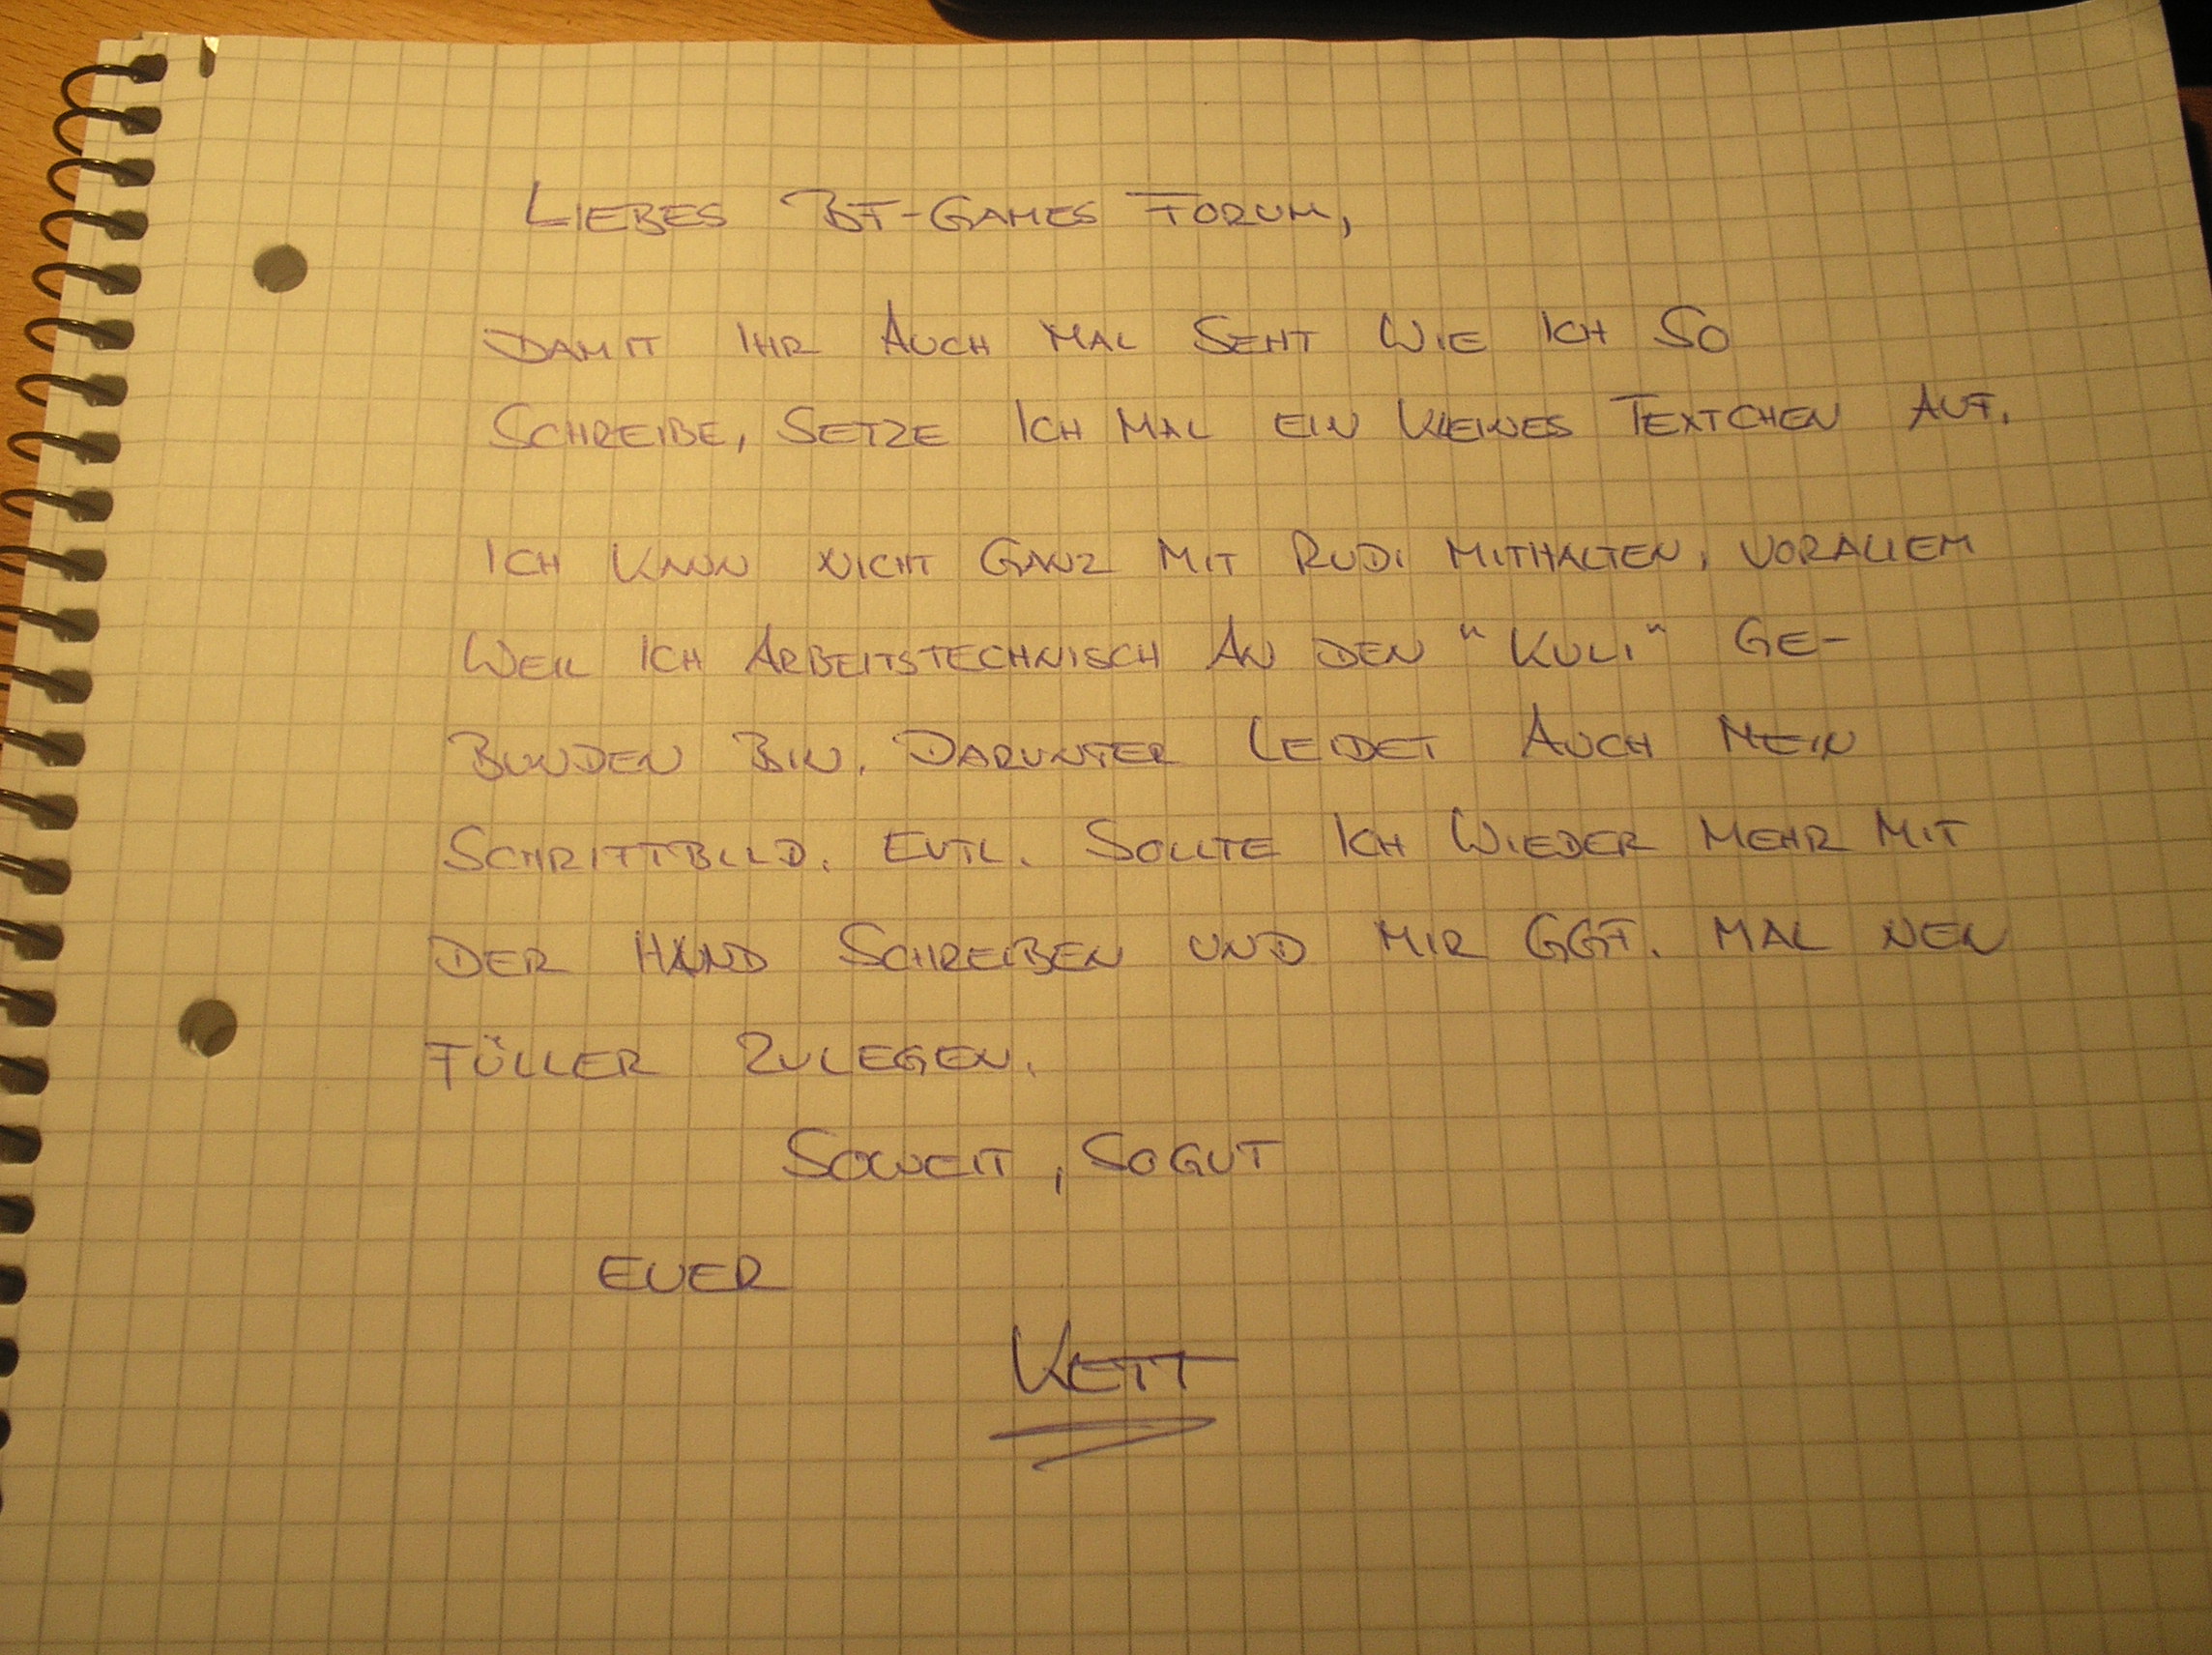 LIEBES BF-GAMES FORUM,
DAMIT IHR AUCH MAL SEHT WIE ICH SO
SCHREIBE, SETZE ICH MAL EIN KLEINES TEXTCHEN AUF.
ICH KANN NICHT GANZ MIT RUDI MITHALTEN, VORALLEM
WEIL ICH ARBEITSTECHNISCH AN DEN "KULI" GE-
BUNDEN BIN. DARUNTER LEIDET AUCH MEIN
SCHRIFTBILD. EVTL. SOLLTE ICH WIEDER MEHR MIT
DER HAND SCHREIBEN UND MIR GGF. MAL NEN
FÜLLER ZULEGEN.
SOWEIT, SOGUT
EUER
KETT